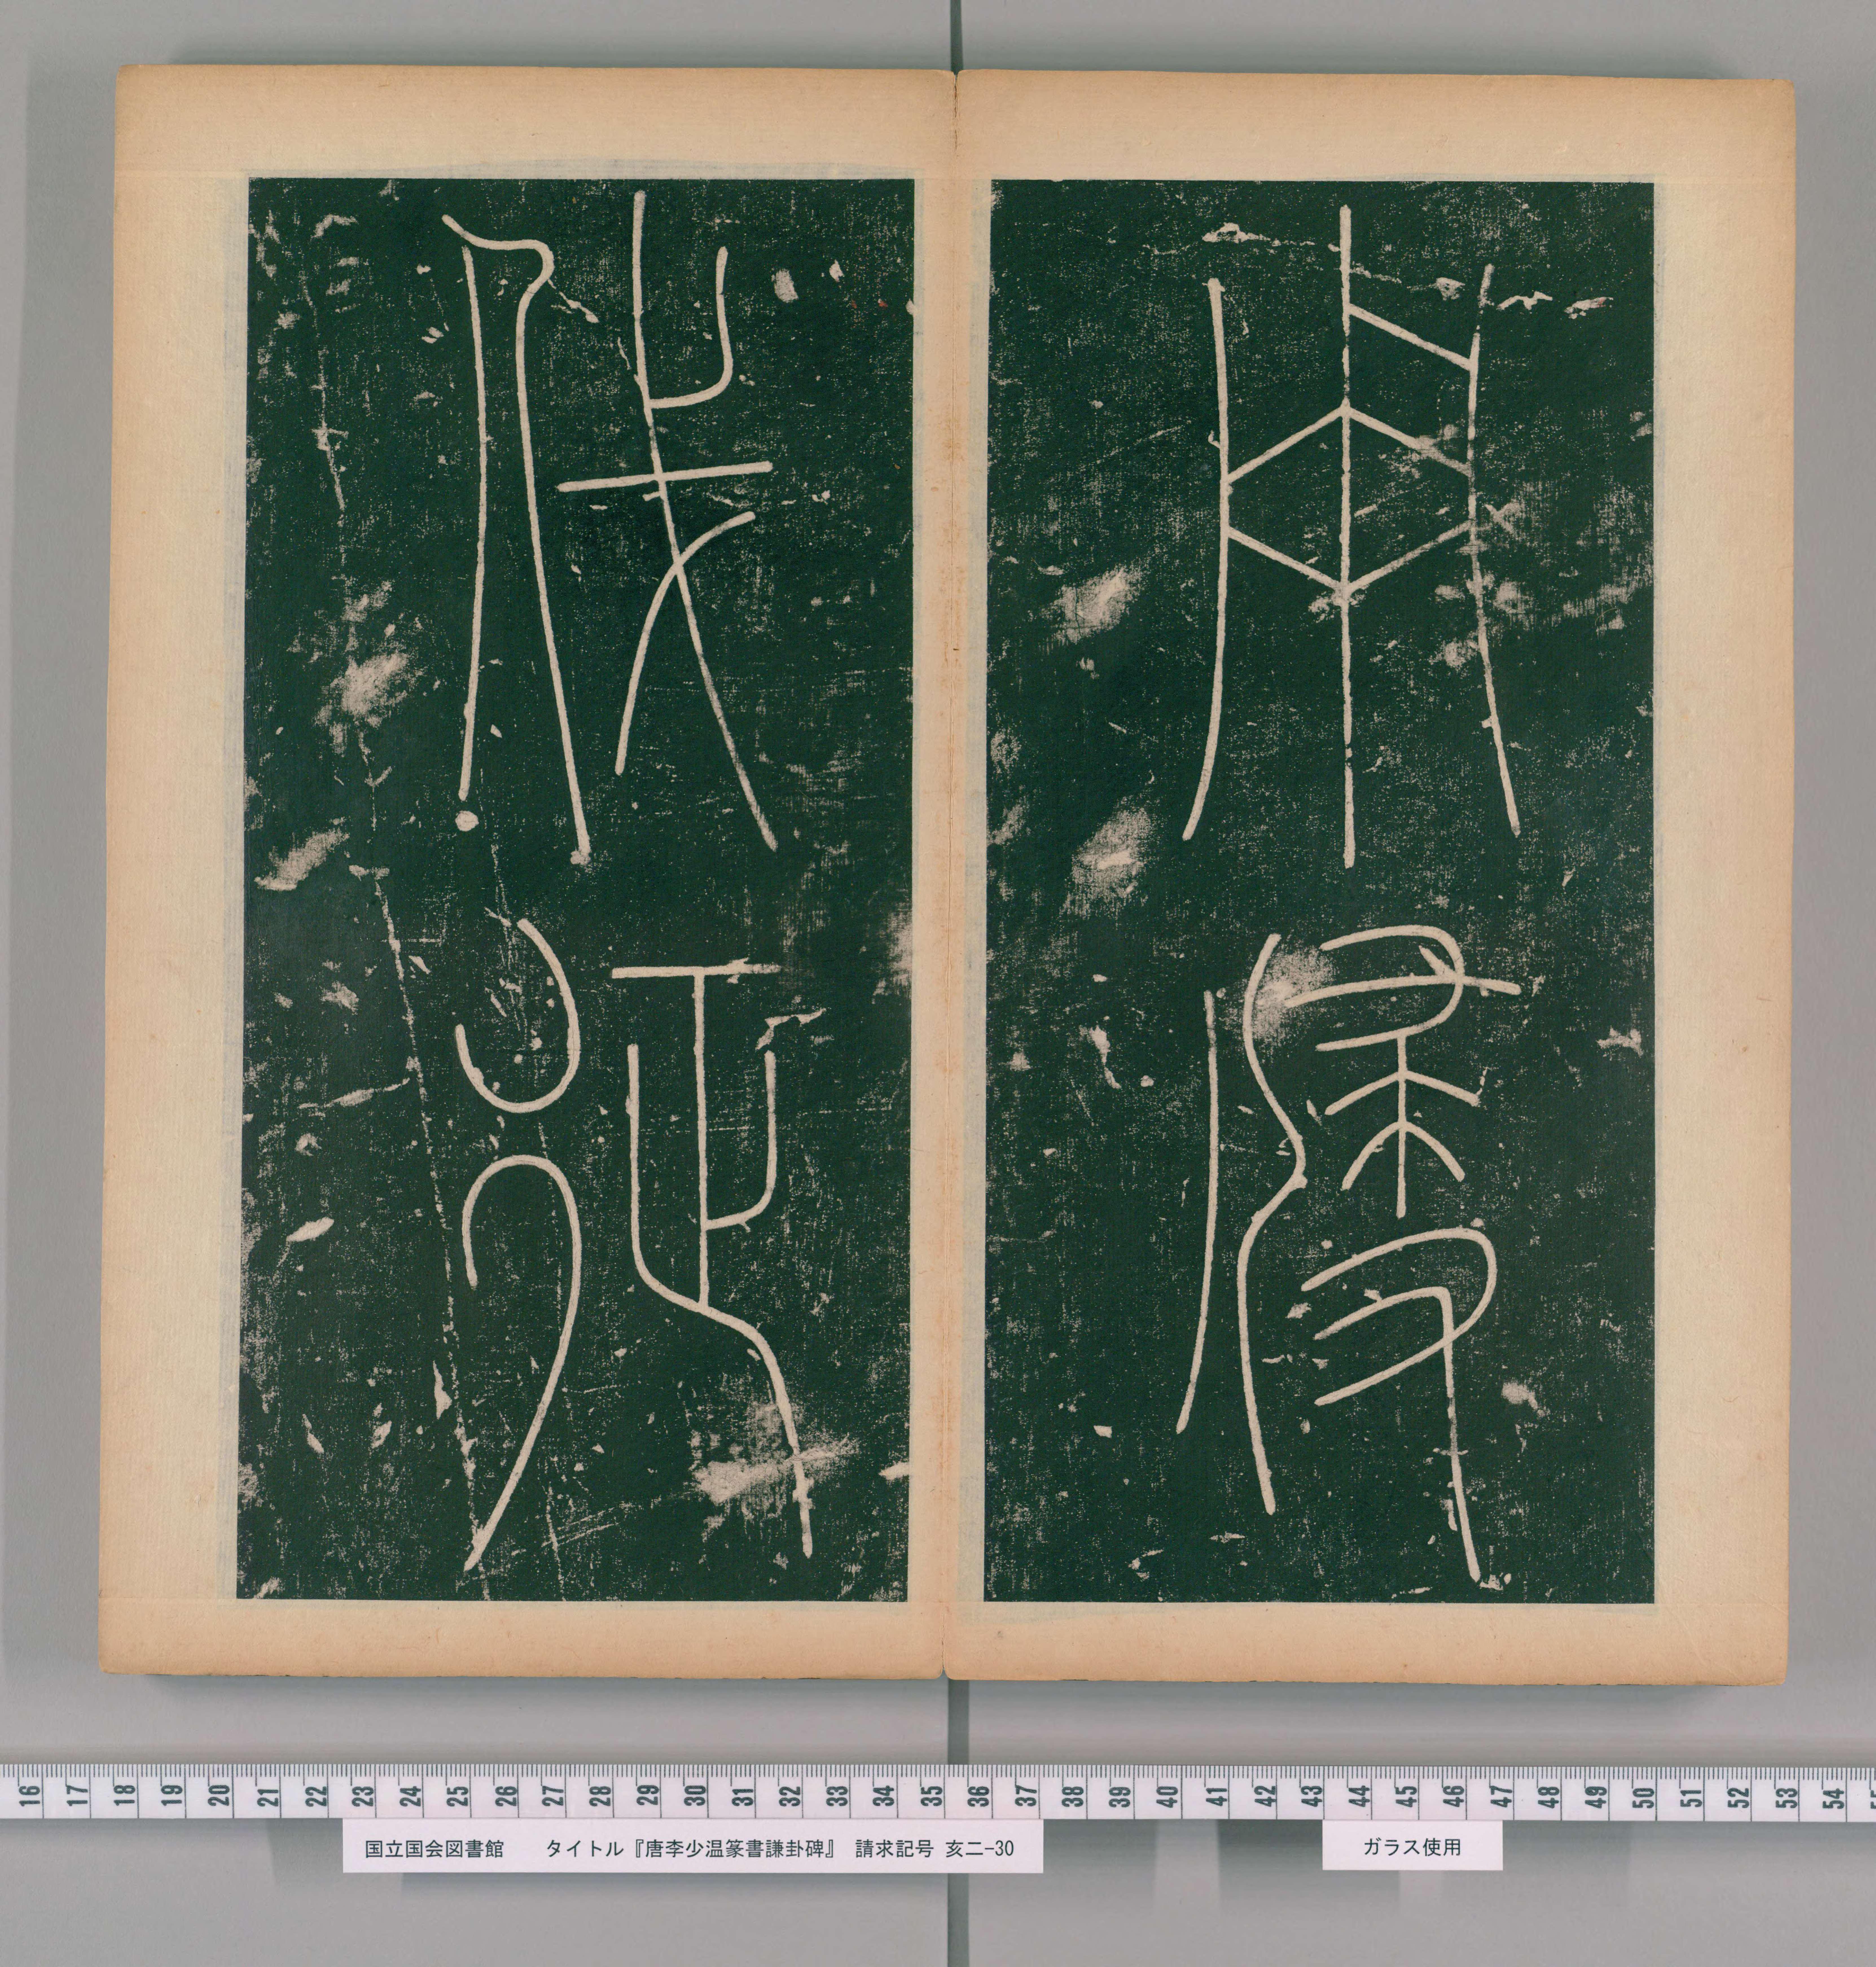 用侵
伐征
16 17 18 19 20 21 22 23 24 25 26 27 28 29 30 31 32 33 34 35 36 37 38 39 40 41 42 43 44 45 46 47 48 49 50 51 52 53 54
国立国会図書館 タイトル『唐李少温篆書謙卦碑』 請求記号 亥二-30
ガラス使用